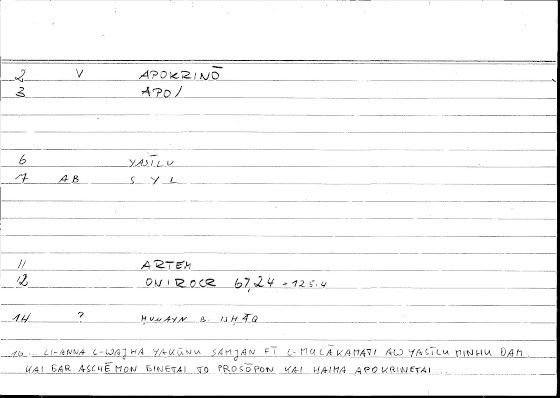 2 V APOKRINŌ
3 APO/
6 YASĪLU
7 AB S Y L
11 ARTEM
12 ONIROCR 67,24 = 125.4
14 ? ḤUNAYN B. ISḤĀQ
16 LI-ANNA L-WAJHA YAKŪNU SAMJAN FĪ L-MULĀKAMATI AW YASĪLU MINHU DAM
KAI GAR ASCHĒMON GINETAI TO PROSŌPON KAI HAIMA APOKRINETAI